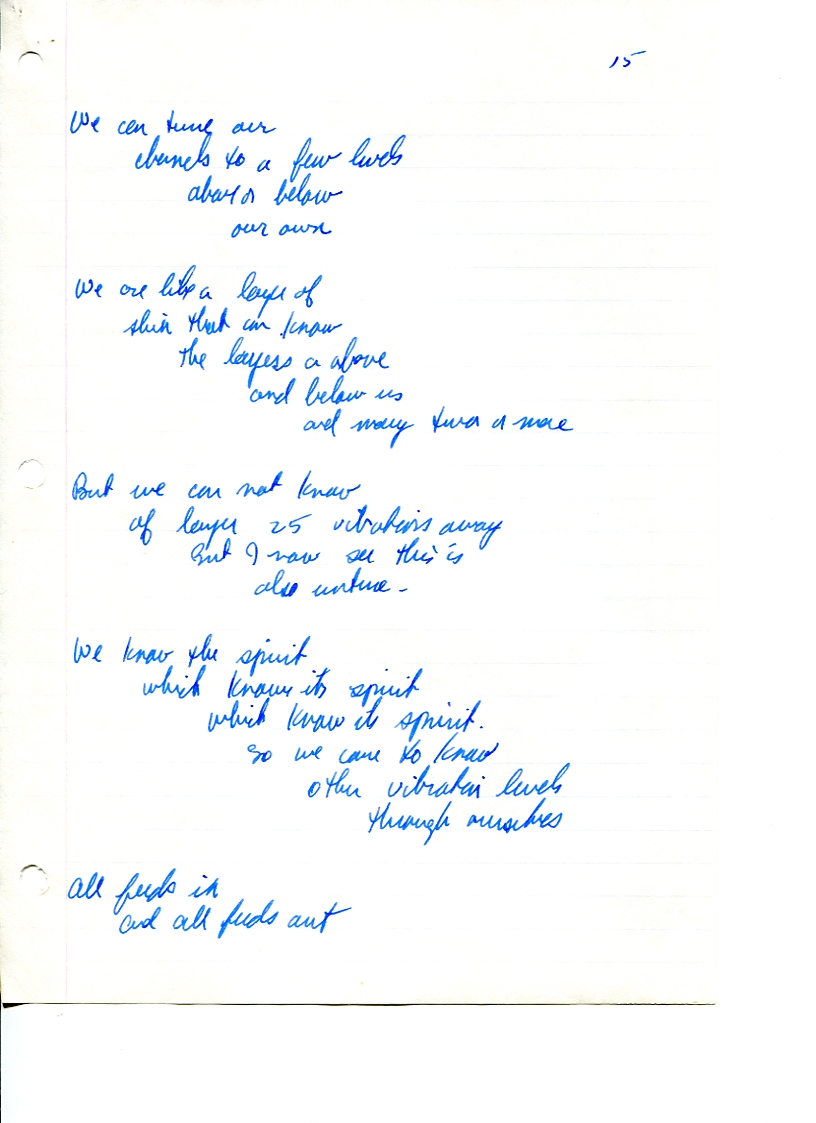 15
We can tune our
channels to a few levels
above or below
our own
We are like a layer of
skin that can know
the layers a above
and below us
and many two or more
But we can not know
of layer 25 vibrations away
But I now see this is
also untrue -
We know the spirit
which knows its spirit
which know its spirit.
So we come to know
other vibration levels
through ourselves
All feeds in
and all feeds out